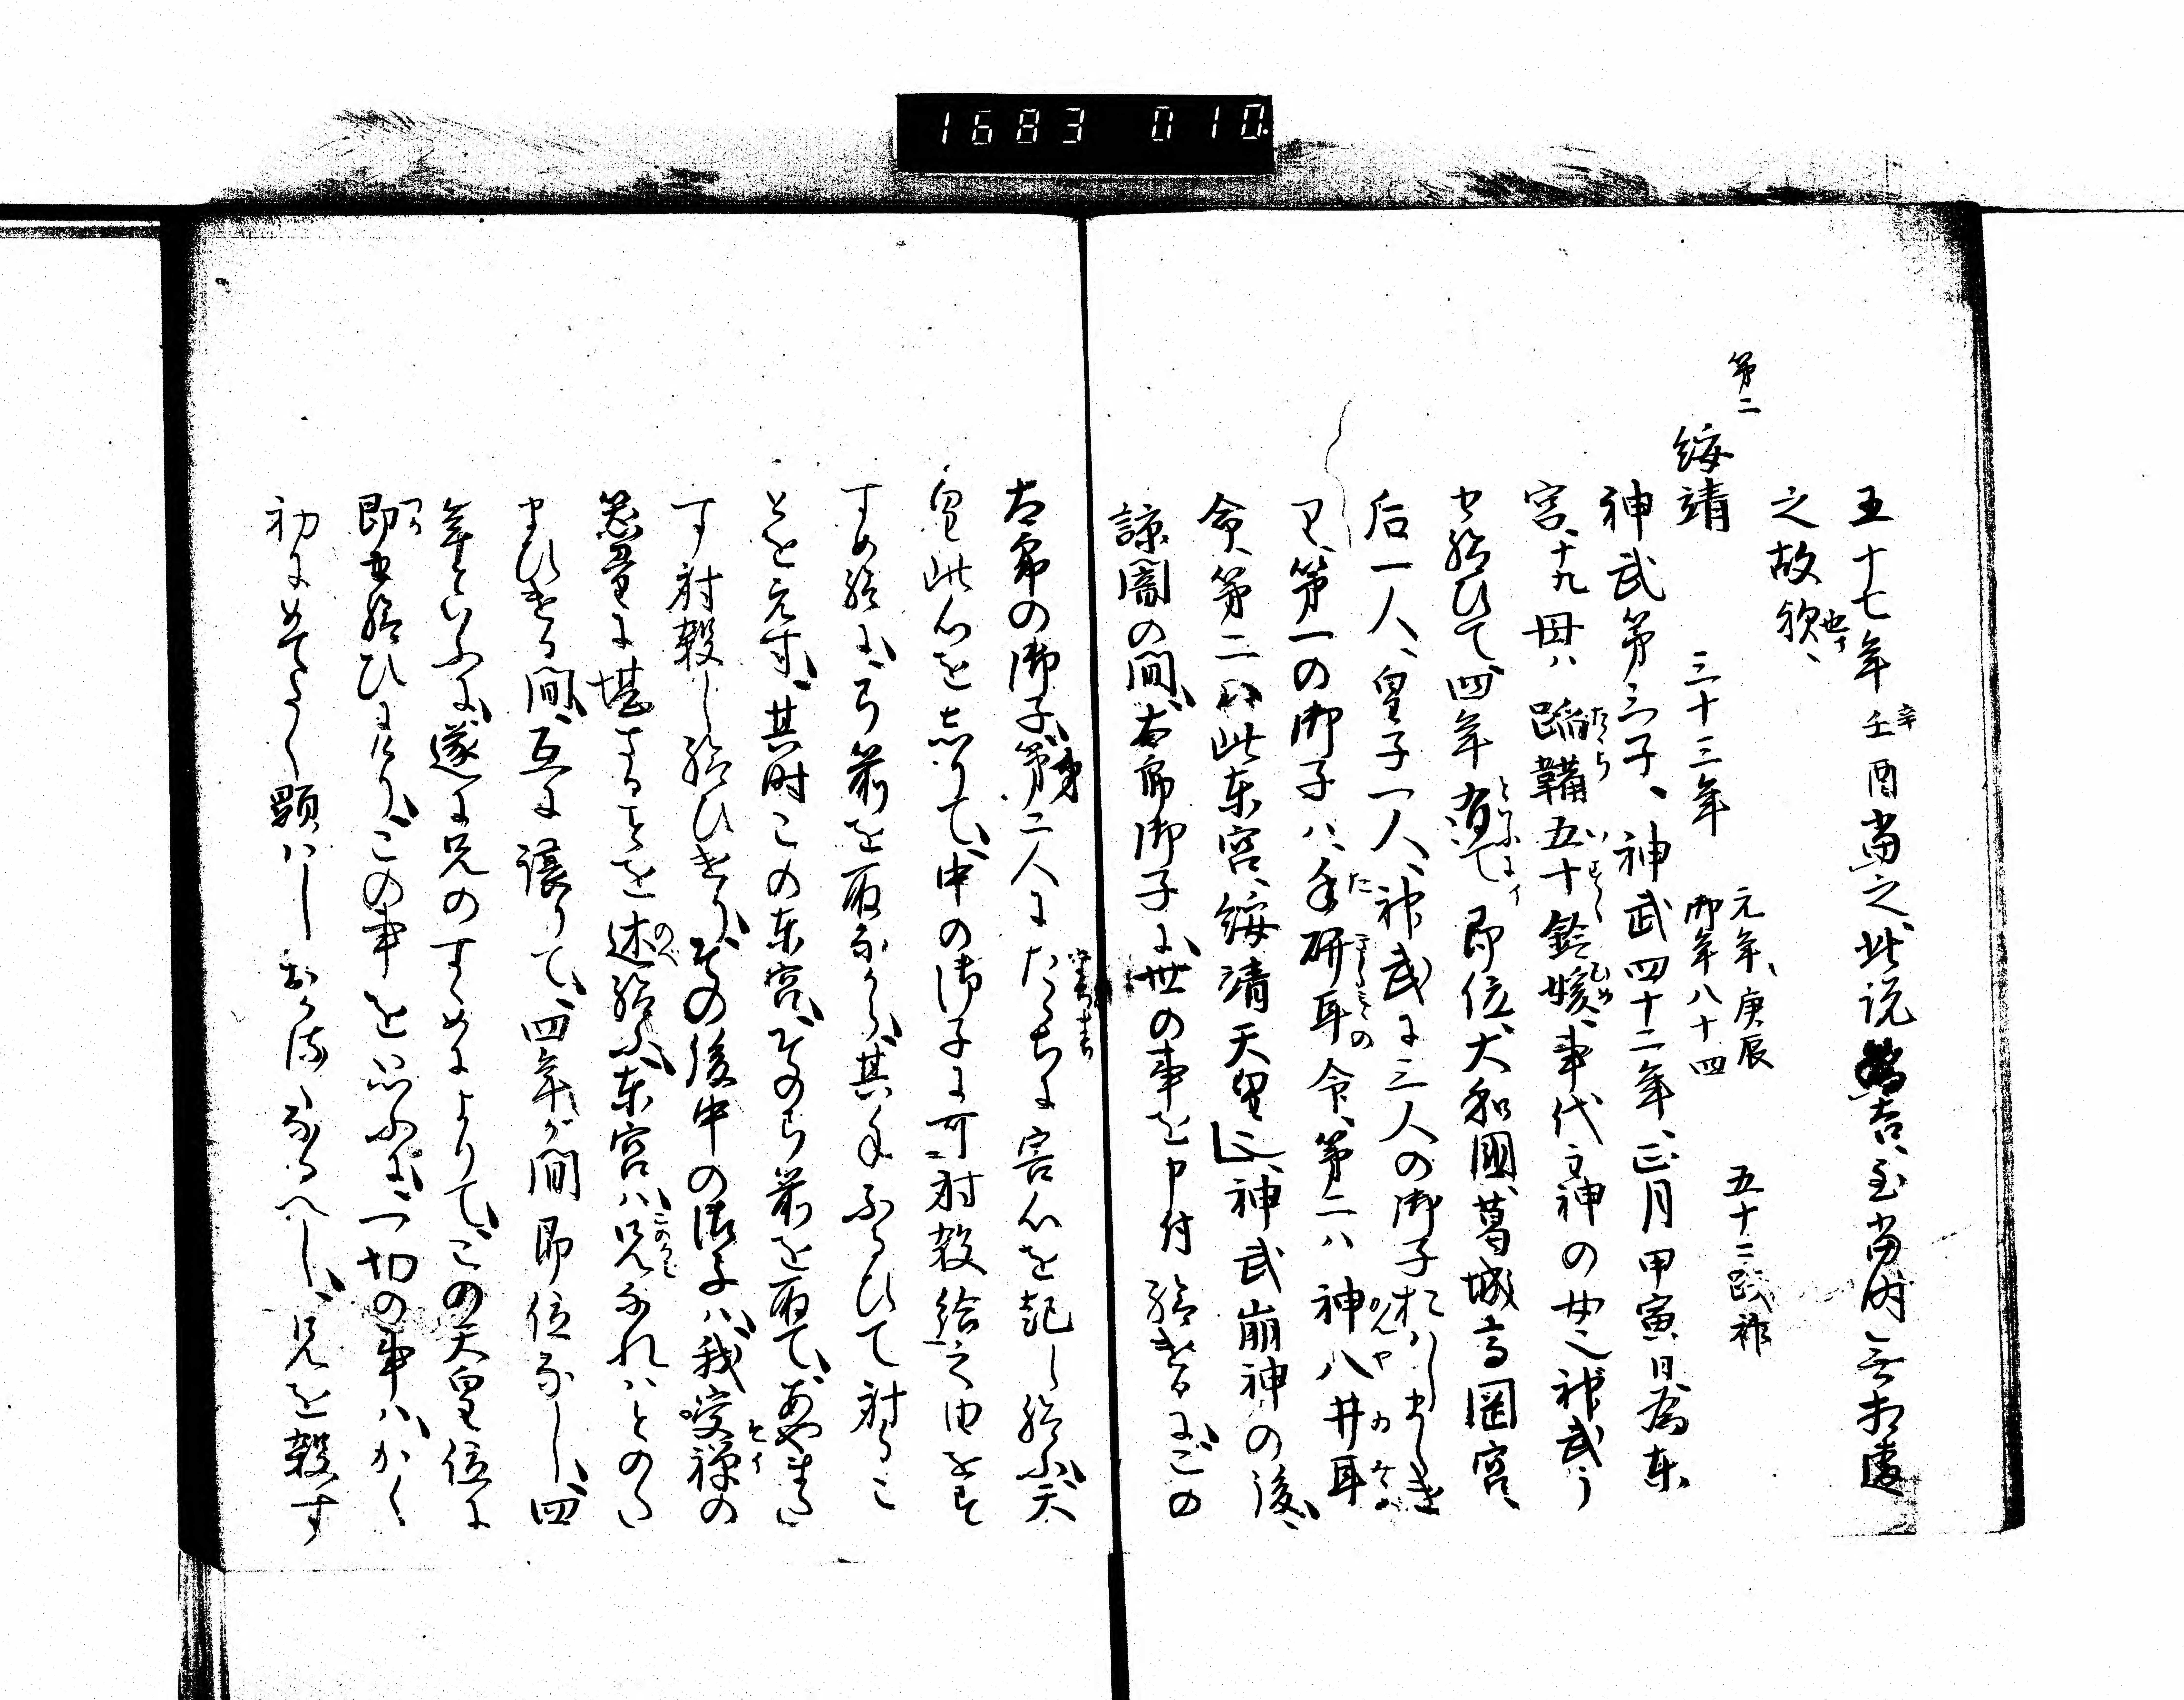 1683 010
五十七年壬辛酉当之、此説吉、至当時無相違
之故歟、也イ
第二
綏靖 三十三年 元年、庚辰 御年八十四 五十二即位
神武第三子、神武四十二年、正月甲寅日為東
宮、十九母ハ蹈鞴五十鈴媛、事代主神の女也、神武
せ給ひて四年有て即位、大和國葛城高岡宮、
后一人、皇子一人、神武に三人の御子おハしましき
第一の御子ハ、手研耳命、第二ハ神八井耳
命、第二ハ此東宮、綏靖天皇也、神武崩神の後、
諒闇の間、太郎御子に、世の事を申付給けるに、この
太郎の御子、第二人にたちまちに害心を起し給ふ、天
皇此心をしりて、中の御子に可射殺給之由をす
すめ給に、弓箭を取ながら、其手ふるひて射るこ
とを元す、其時この東宮、そのら箭を取て、あやまた
す射殺し給ひけり、その後中の御子ハ、我受禅の
器量に堪ざることを述給ふ、東宮ハ、兄なれハとのた
まひける間、互に譲りて、四年が間即位なし、四
年といふに、遂に兄のすゝめによりて、この天皇位に
即せ給ひにけり、この事を思ふに、一切の事ハ、かく
初にめでたく顕ハしおかるゝなるへし、兄を殺す